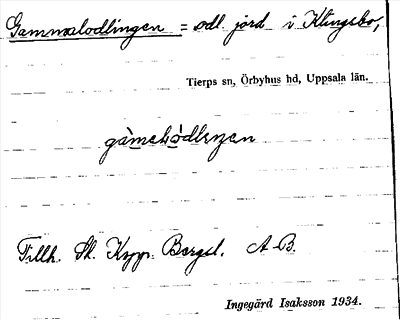 Gammalodlingen = odl. jord i Klingsbo,
Tierps sn, Örbyhus hd, Uppsala län.
gàmelòdlengen
Tillh. St. Kopp. Bergsl. A-B.
Ingegärd Isaksson 1934.